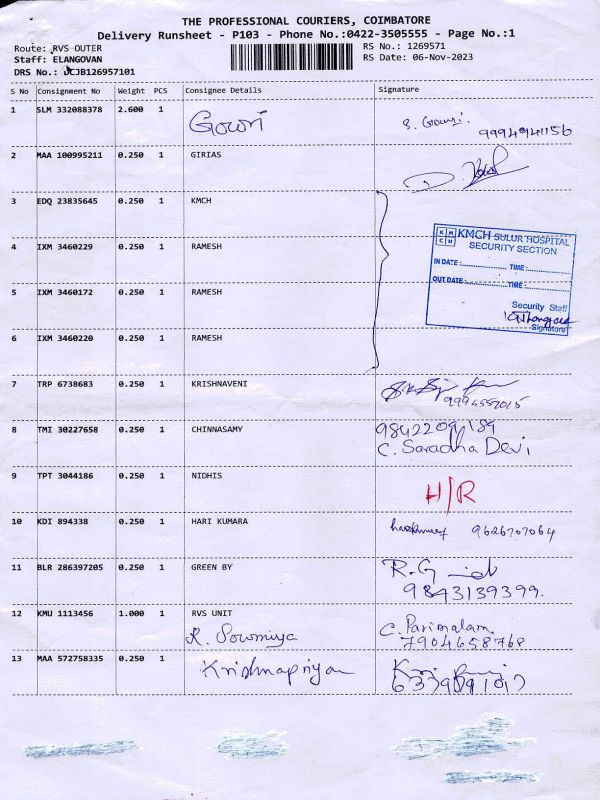 THE PROFESSIONAL COURIERS, COIMBATORE
Delivery Runsheet - P103 - Phone No.:0422-3505555 - Page No.:1
Route: RVS OUTER
RS No.: 1269571
Staff: ELANGOVAN
RS Date: 06-Nov-2023
DRS No.: UCJB126957101
S No Consignment No Weight PCS Consignee Details Signature
1 SLM 332088378 2.600 1 Gowri S. Gowri. 9994941156
2 MAA 100995211 0.250 1 GIRIAS
3 EDQ 23835645 0.250 1 KMCH
KMCH SULUR HOSPITAL
SECURITY SECTION
4 IXM 3460229 0.250 1 RAMESH
IN DATE : TIME :
OUT DATE : TIME :
5 IXM 3460172 0.250 1 RAMESH
Security Staff
Signature
6 IXM 3460220 0.250 1 RAMESH
7 TRP 6738683 0.250 1 KRISHNAVENI
9994552015
8 TMI 30227658 0.250 1 CHINNASAMY 9842209189
C. Saradha Devi
9 TPT 3044186 0.250 1 NIDHIS
H/R
10 KDI 894338 0.250 1 HARI KUMARA 9626707064
11 BLR 286397205 0.250 1 GREEN BY
9843139399.
12 KMU 1113456 1.000 1 RVS UNIT
R. Sowmiya C. Parimalam.
7904658768
13 MAA 572758335 0.250 1 Krishnapriya